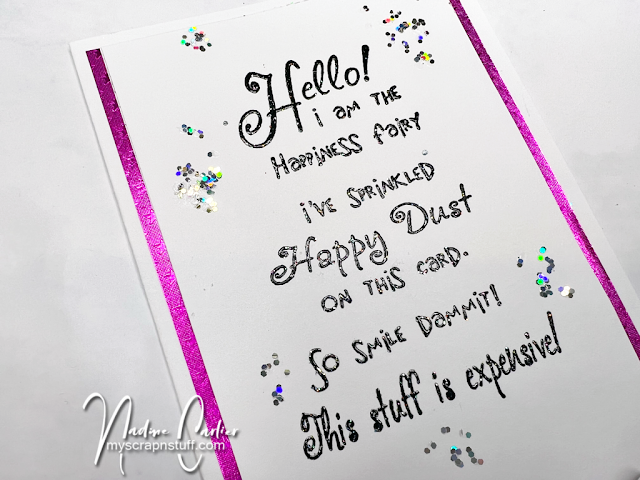 Hello!
i am the
Happiness fairy
i've sprinkled
Happy Dust
on this card.
So smile dammit!
This stuff is expensive!
Nadine Carlier
myscrapnstuff.com